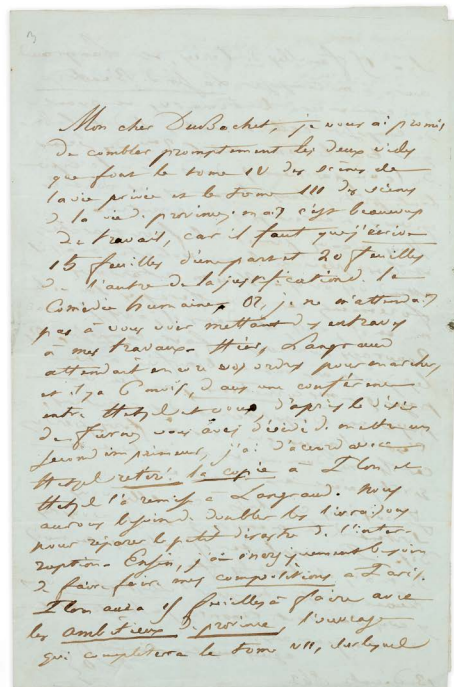 Mon cher Dubochet, je vous ai promis
de combler promptement les deux vides
que font le tome IV des scènes de
la vie privée et le tome III des scènes
de la vie de province; en a7 c'est beaucoup
de travail, car il faut que j'écrive
15 feuilles d'une part et 20 feuilles
de l'autre de la justification de la
Comédie humaine. Or, je ne m'attendais
pas à vous voir mettant des entraves
à mes travaux. Hier, Langrand
attendait encore vos ordres pour marcher
et il y a 6 mois, dans une conférence
entre Hetzel et vous d'après le désir
de Furne, vous avez décidé de mettre un
second imprimeur, j'ai d'accord avec
Hetzel retiré la copie à Plon et
Hetzel l'a remise à Langrand. Nous
aurons besoin de doubler les livraisons
pour réparer le petit désastre de l'inter
ruption. Enfin, j'ai énergiquement besoin
de faire faire mes compositions à Paris.
Plon aura 15 feuilles à faire avec
les ambitieux de province, l'ouvrage
qui complètera le tome VII, sur lequel